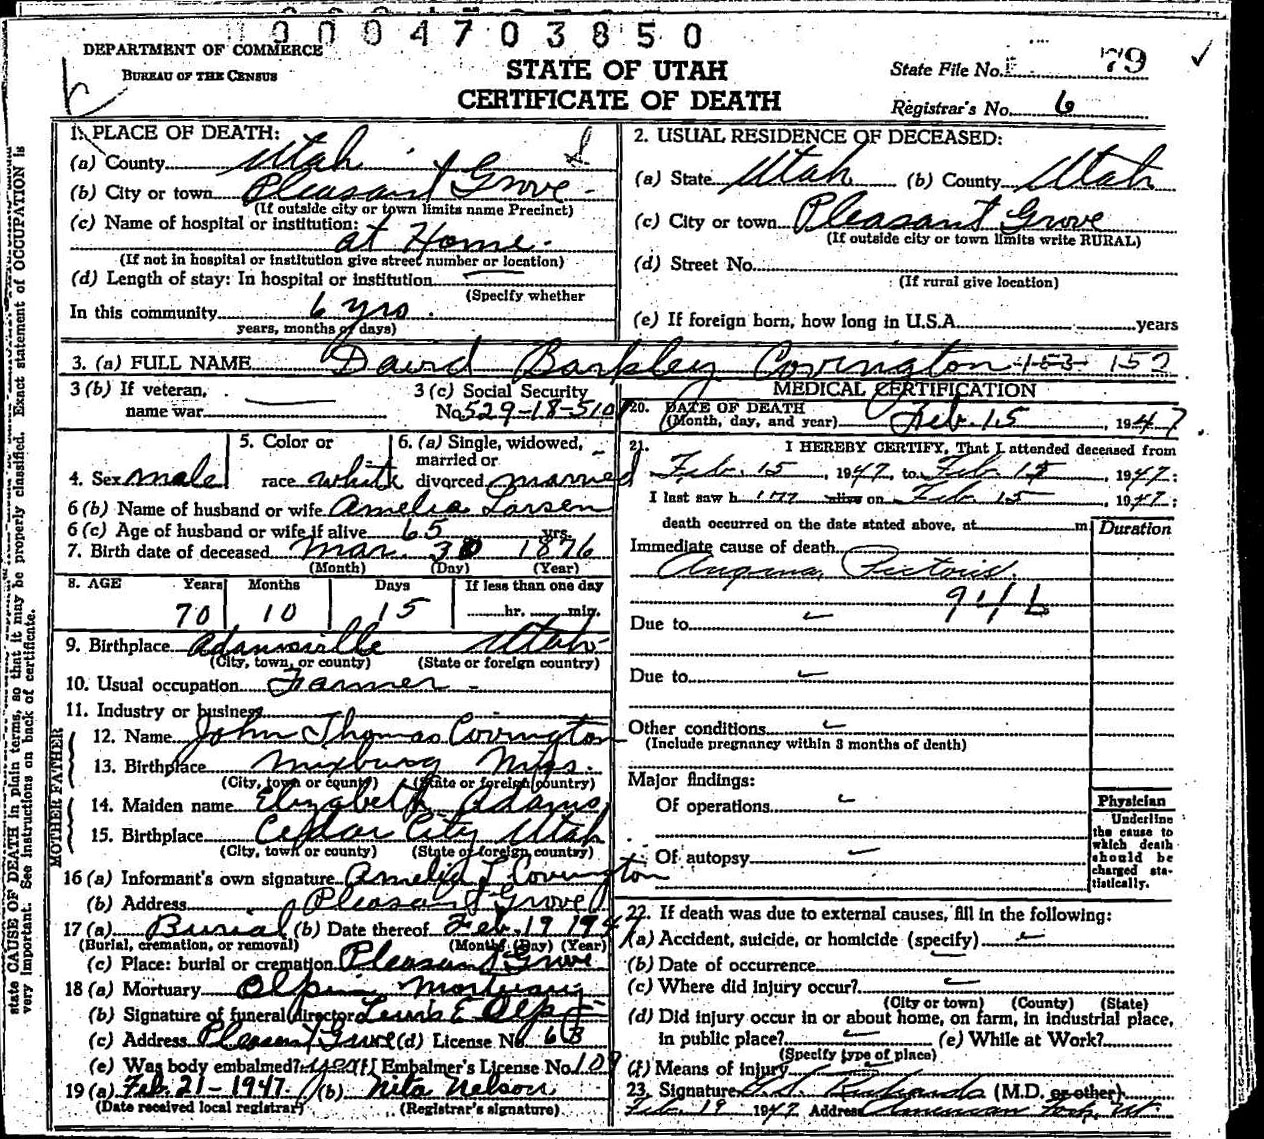 0004703850
DEPARTMENT OF COMMERCE
BUREAU OF THE CENSUS
STATE OF UTAH
CERTIFICATE OF DEATH
State File No. 79
Registrar's No. 6
state CAUSE OF DEATH in plain terms, so that it may be properly classified. Exact statement of OCCUPATION is
very important. See instructions on back of certificate.
1. PLACE OF DEATH:
(a) County Utah
(b) City or town Pleasant Grove
(If outside city or town limits name Precinct)
(c) Name of hospital or institution:
at Home
(If not in hospital or institution give street number or location)
(d) Length of stay: In hospital or institution
(Specify whether
In this community 6 yrs.
years, months or days)
2. USUAL RESIDENCE OF DECEASED:
(a) State Utah (b) County Utah
(c) City or town Pleasant Grove
(If outside city or town limits write RURAL)
(d) Street No.
(If rural give location)
(e) If foreign born, how long in U.S.A. years
3. (a) FULL NAME David Barkley Covington 153 152
3 (b) If veteran,
name war
3 (c) Social Security
No. 529-18-5101
4. Sex male
5. Color or
race white
6. (a) Single, widowed,
married or
divorced married
6 (b) Name of husband or wife Amelia Larsen
6 (c) Age of husband or wife if alive 65 yrs.
7. Birth date of deceased Mar. 30 1876
(Month) (Day) (Year)
8. AGE Years Months Days If less than one day
70 10 15 hr. min.
9. Birthplace Adamsville Utah
(City, town, or county) (State or foreign country)
10. Usual occupation Farmer
11. Industry or business
FATHER
12. Name John Thomas Covington
13. Birthplace Miss.
(City, town or county) (State or foreign country)
MOTHER
14. Maiden name Elizabeth Adams
15. Birthplace Cedar City Utah
(City, town or county) (State or foreign country)
16 (a) Informant's own signature Amelia L Covington
(b) Address Pleasant Grove
17 (a) Burial (b) Date thereof Feb. 19 1947
(Burial, cremation, or removal) (Month) (Day) (Year)
(c) Place: burial or cremation Pleasant Grove
18 (a) Mortuary Olpin Mortuary
(b) Signature of funeral director Lewis E Olpin
(c) Address Pleasant Grove (d) License No. 63
(e) Was body embalmed? yes (f) Embalmer's License No. 109
19 (a) Feb. 21-1947. (b) Nita Nelson
(Date received local registrar) (Registrar's signature)
MEDICAL CERTIFICATION
20. DATE OF DEATH
(Month, day, and year) Feb. 15, 1947
21. I HEREBY CERTIFY, That I attended deceased from
Feb. 15, 1947, to Feb 15, 1947;
I last saw him alive on Feb 15, 1947;
death occurred on the date stated above, at m
Duration
Immediate cause of death
Angina Pectoris
94b
Due to
Due to
Other conditions
(Include pregnancy within 3 months of death)
Major findings:
Of operations
Of autopsy
Physician
Underline
the cause to
which death
should be
charged sta-
tistically.
22. If death was due to external causes, fill in the following:
(a) Accident, suicide, or homicide (specify)
(b) Date of occurrence
(c) Where did injury occur?
(City or town) (County) (State)
(d) Did injury occur in or about home, on farm, in industrial place,
in public place? (e) While at Work?
(Specify type of place)
(f) Means of injury
23. Signature Richards (M.D. or other)
Feb. 19 1947 Address American Fork, Ut.